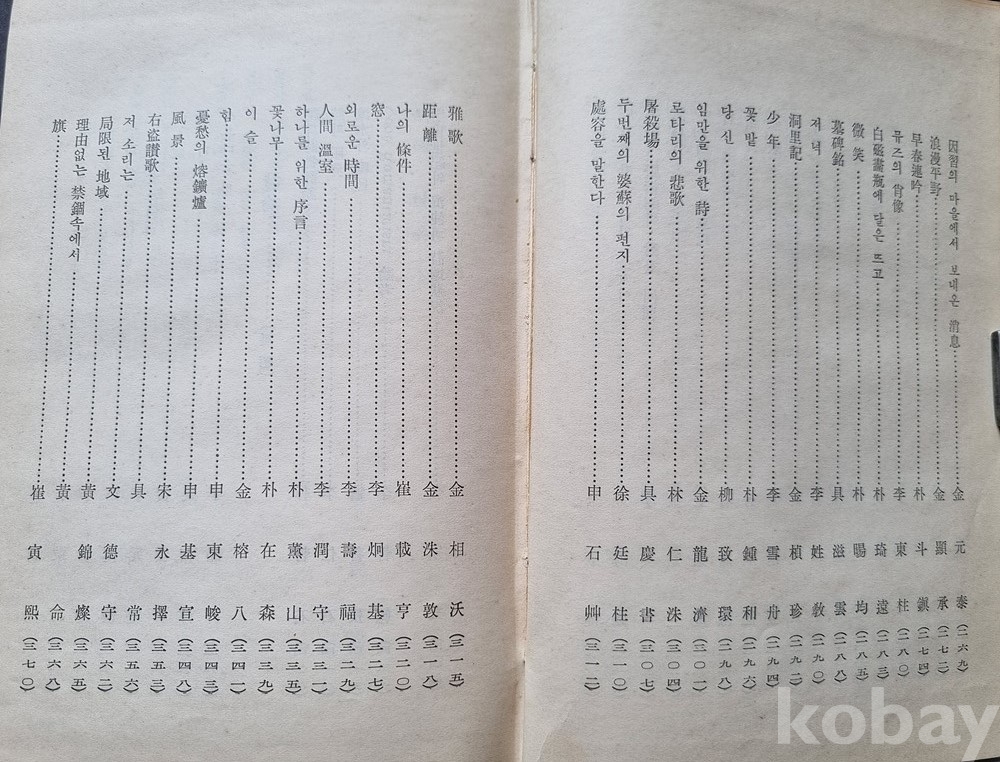 因習의 마을에서 보내온 消息……金元泰(二六九)
浪漫平野……金顯承(二七二)
早春連吟……朴斗鎭(二七四)
뮤즈의 肖像……李東柱(二八〇)
白磁畵甁에 달은 뜨고……朴琦遠(二八三)
微笑……朴暘均(二八五)
墓碑銘……具滋雲(二八八)
저녁……李姓敎(二九〇)
洞里記……金楨珍(二九二)
少年……李雪舟(二九四)
꽃밭……朴鍾和(二九六)
당신……柳致環(二九八)
임만을 위한 詩……金龍濟(三〇一)
로타리의 悲歌……林仁洙(三〇四)
屠殺場……具慶書(三〇七)
두번째의 婆蘇의 편지……徐廷柱(三一〇)
處容을 말한다……申石艸(三一二)
雅歌……金相沃(三一五)
距離……金洙敦(三一八)
나의 條件……崔載亨(三二〇)
窓……李炯基(三二七)
외로운 時間……李壽福(三二九)
人間溫室……李潤守(三三一)
하나를 위한 序言……朴薰山(三三五)
꽃나무……朴在森(三三九)
이슬……金榕八(三四一)
힘……申東峻(三四三)
憂愁의 熔鑛爐……申基宣(三四八)
風景……宋永擇(三五三)
右盜讚歌……具常(三五六)
저 소리는……文德守(三六二)
局限된 地域……黃錦燦(三六五)
理由없는 禁錮속에서……黃命(三六八)
旗……崔寅熙(三七〇)
kobay